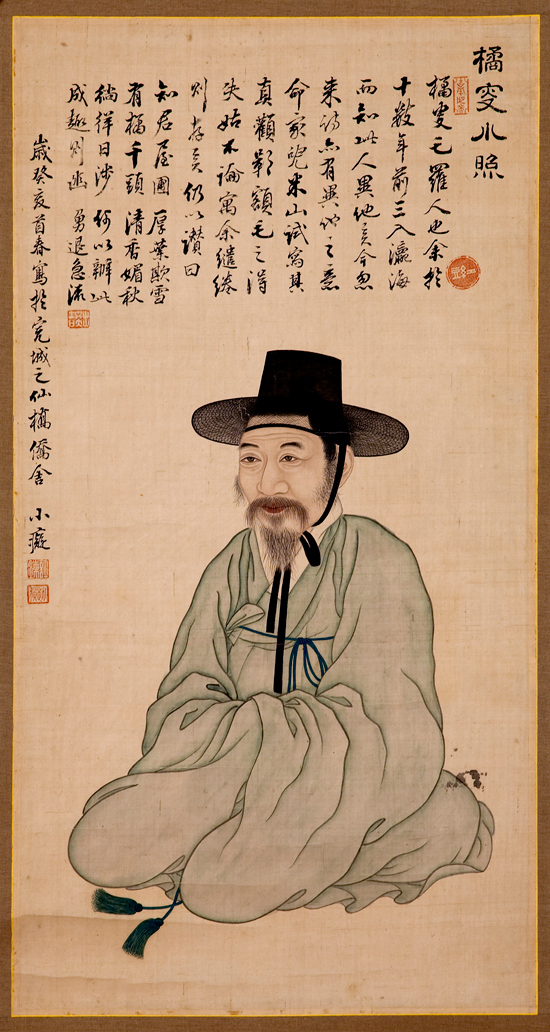 橘叟小照
橘叟乇羅人也余於
十數年前三入瀛海
而知此人異他矣今忽
来訪亦有異他之意
命家兒米山試寫其
真顴影額毛之淂
失姑不論寓余繾綣
則存矣仍以讃曰
知君屋圃厚葉雪
有橘千頭清香媚秋
徜徉日涉何以辦此
成趣則幽勇退急流
歲癸亥首春寫於完城之仙橘僑舍 小癡